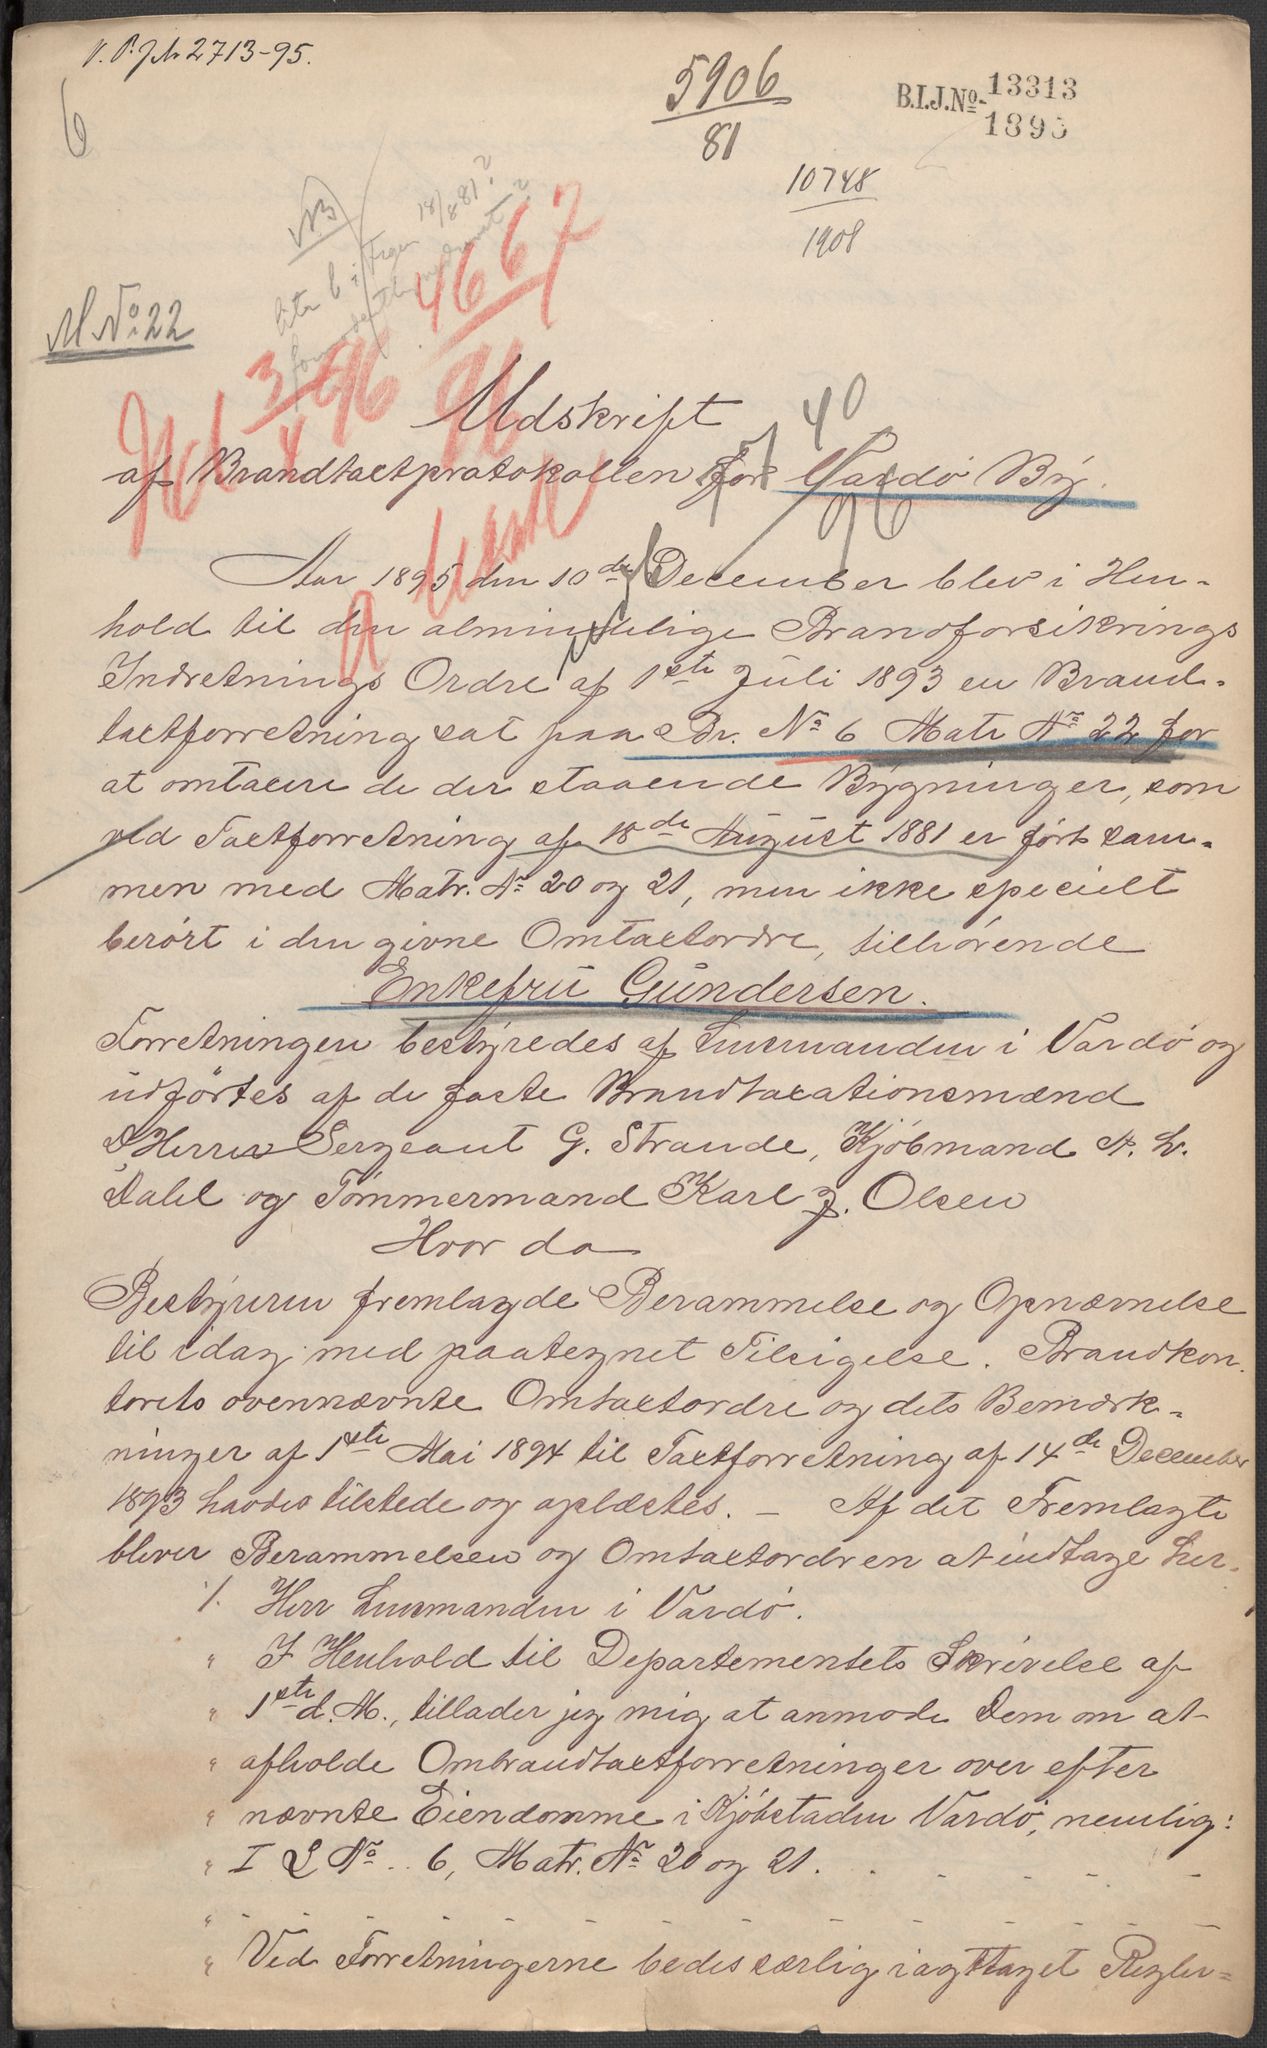 V. P. J No 2713-95.
6
5906
81
B.I.J.No 13313
1895
10748
1908
NB
18/8 81?
4667
96
M No 22
3/4 96
40
96
Udskrift
af Brandtaxtprotokollen for Vardö By.
Aar 1895 den 10de December blev i Hen-
hold til den almindelige Brandforsikrings
Indretnings Ordre af 1ste Juli 1893 en Brand-
taxtforretning sat paa Br. No 6 Matr No 22 for
at omtaxere de der staaende Bygninger, som
ved Taxtforretning af 18de August 1881 er ført sam-
men med Matr. No 20 og 21, men ikke specielt
berørt i den givne Omtaxtordre, tilhørende
Enkefru Gundersen.
Forretningen bestyredes af Lensmanden i Vardö og
udførtes af de faste Brandtaxationsmænd
D'Herrer Sergeant G. Strande, Kjøbmand A. L.
Dahl og Tømmermand Karl J. Olsen
Hvor da
Bestyreren fremlagde Berammelse og Opnævnelse
til idag med paategnet Tilsigelse. Brandkon-
torets ovennævnte Omtaxtordre og dets Bemærk-
ninger af 1ste Mai 1894 til Taxtforretning af 14de December
1893 havdes tilstede og oplæstes. — Af det Fremlagte
bliver Berammelsen og Omtaxtordren at indtage her.
"/. Herr Lensmanden i Vardö.
" I Henhold til Departementets Skrivelse af
" 1ste d. M., tillader jeg mig at anmode Dem om at
" afholde Ombrandtaxtforretninger over efter
" nævnte Eiendomme i Kjøbstaden Vardö, nemlig:
" I L No .. 6, Matr. No 20 og 21. . - - - - -
" - - - - - - - - - - - -
" Ved Forretningerne bedes særlig iagttaget Regler-